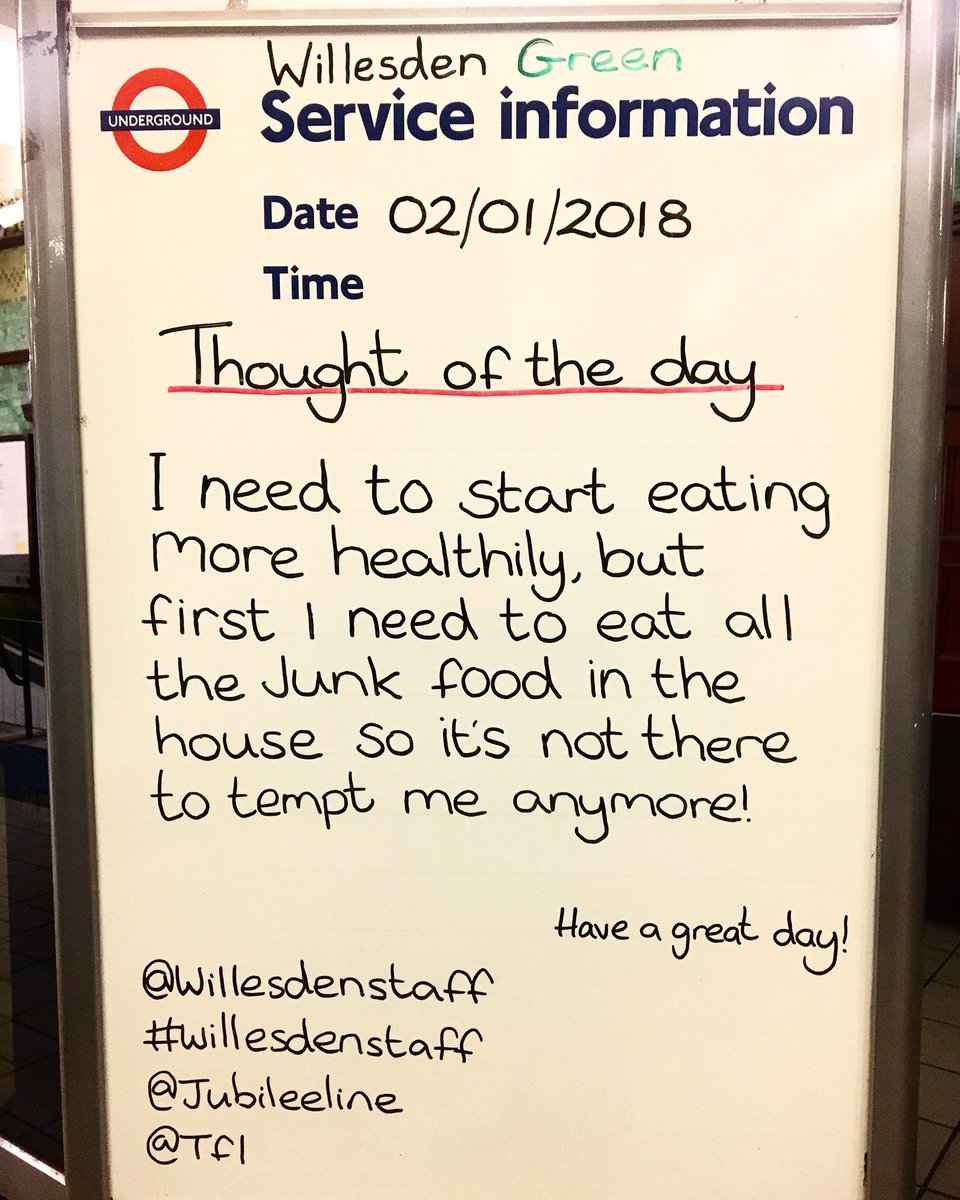 Willesden Green
UNDERGROUND
Service information
Date 02/01/2018
Time
Thought of the day
I need to start eating
more healthily, but
first I need to eat all
the Junk food in the
house so it's not there
to tempt me anymore!
Have a great day!
@Willesdenstaff
#Willesdenstaff
@Jubileeline
@Tfl